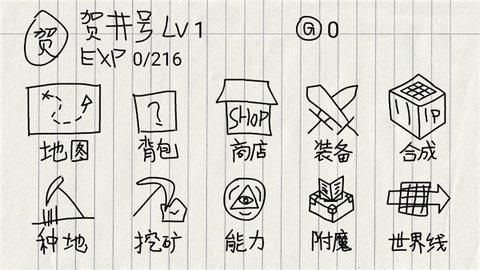 贺 贺井号 LV1 G 0
EXP 0/216
? SHOP
地图 背包 商店 装备 合成
种地 挖矿 能力 附魔 世界线